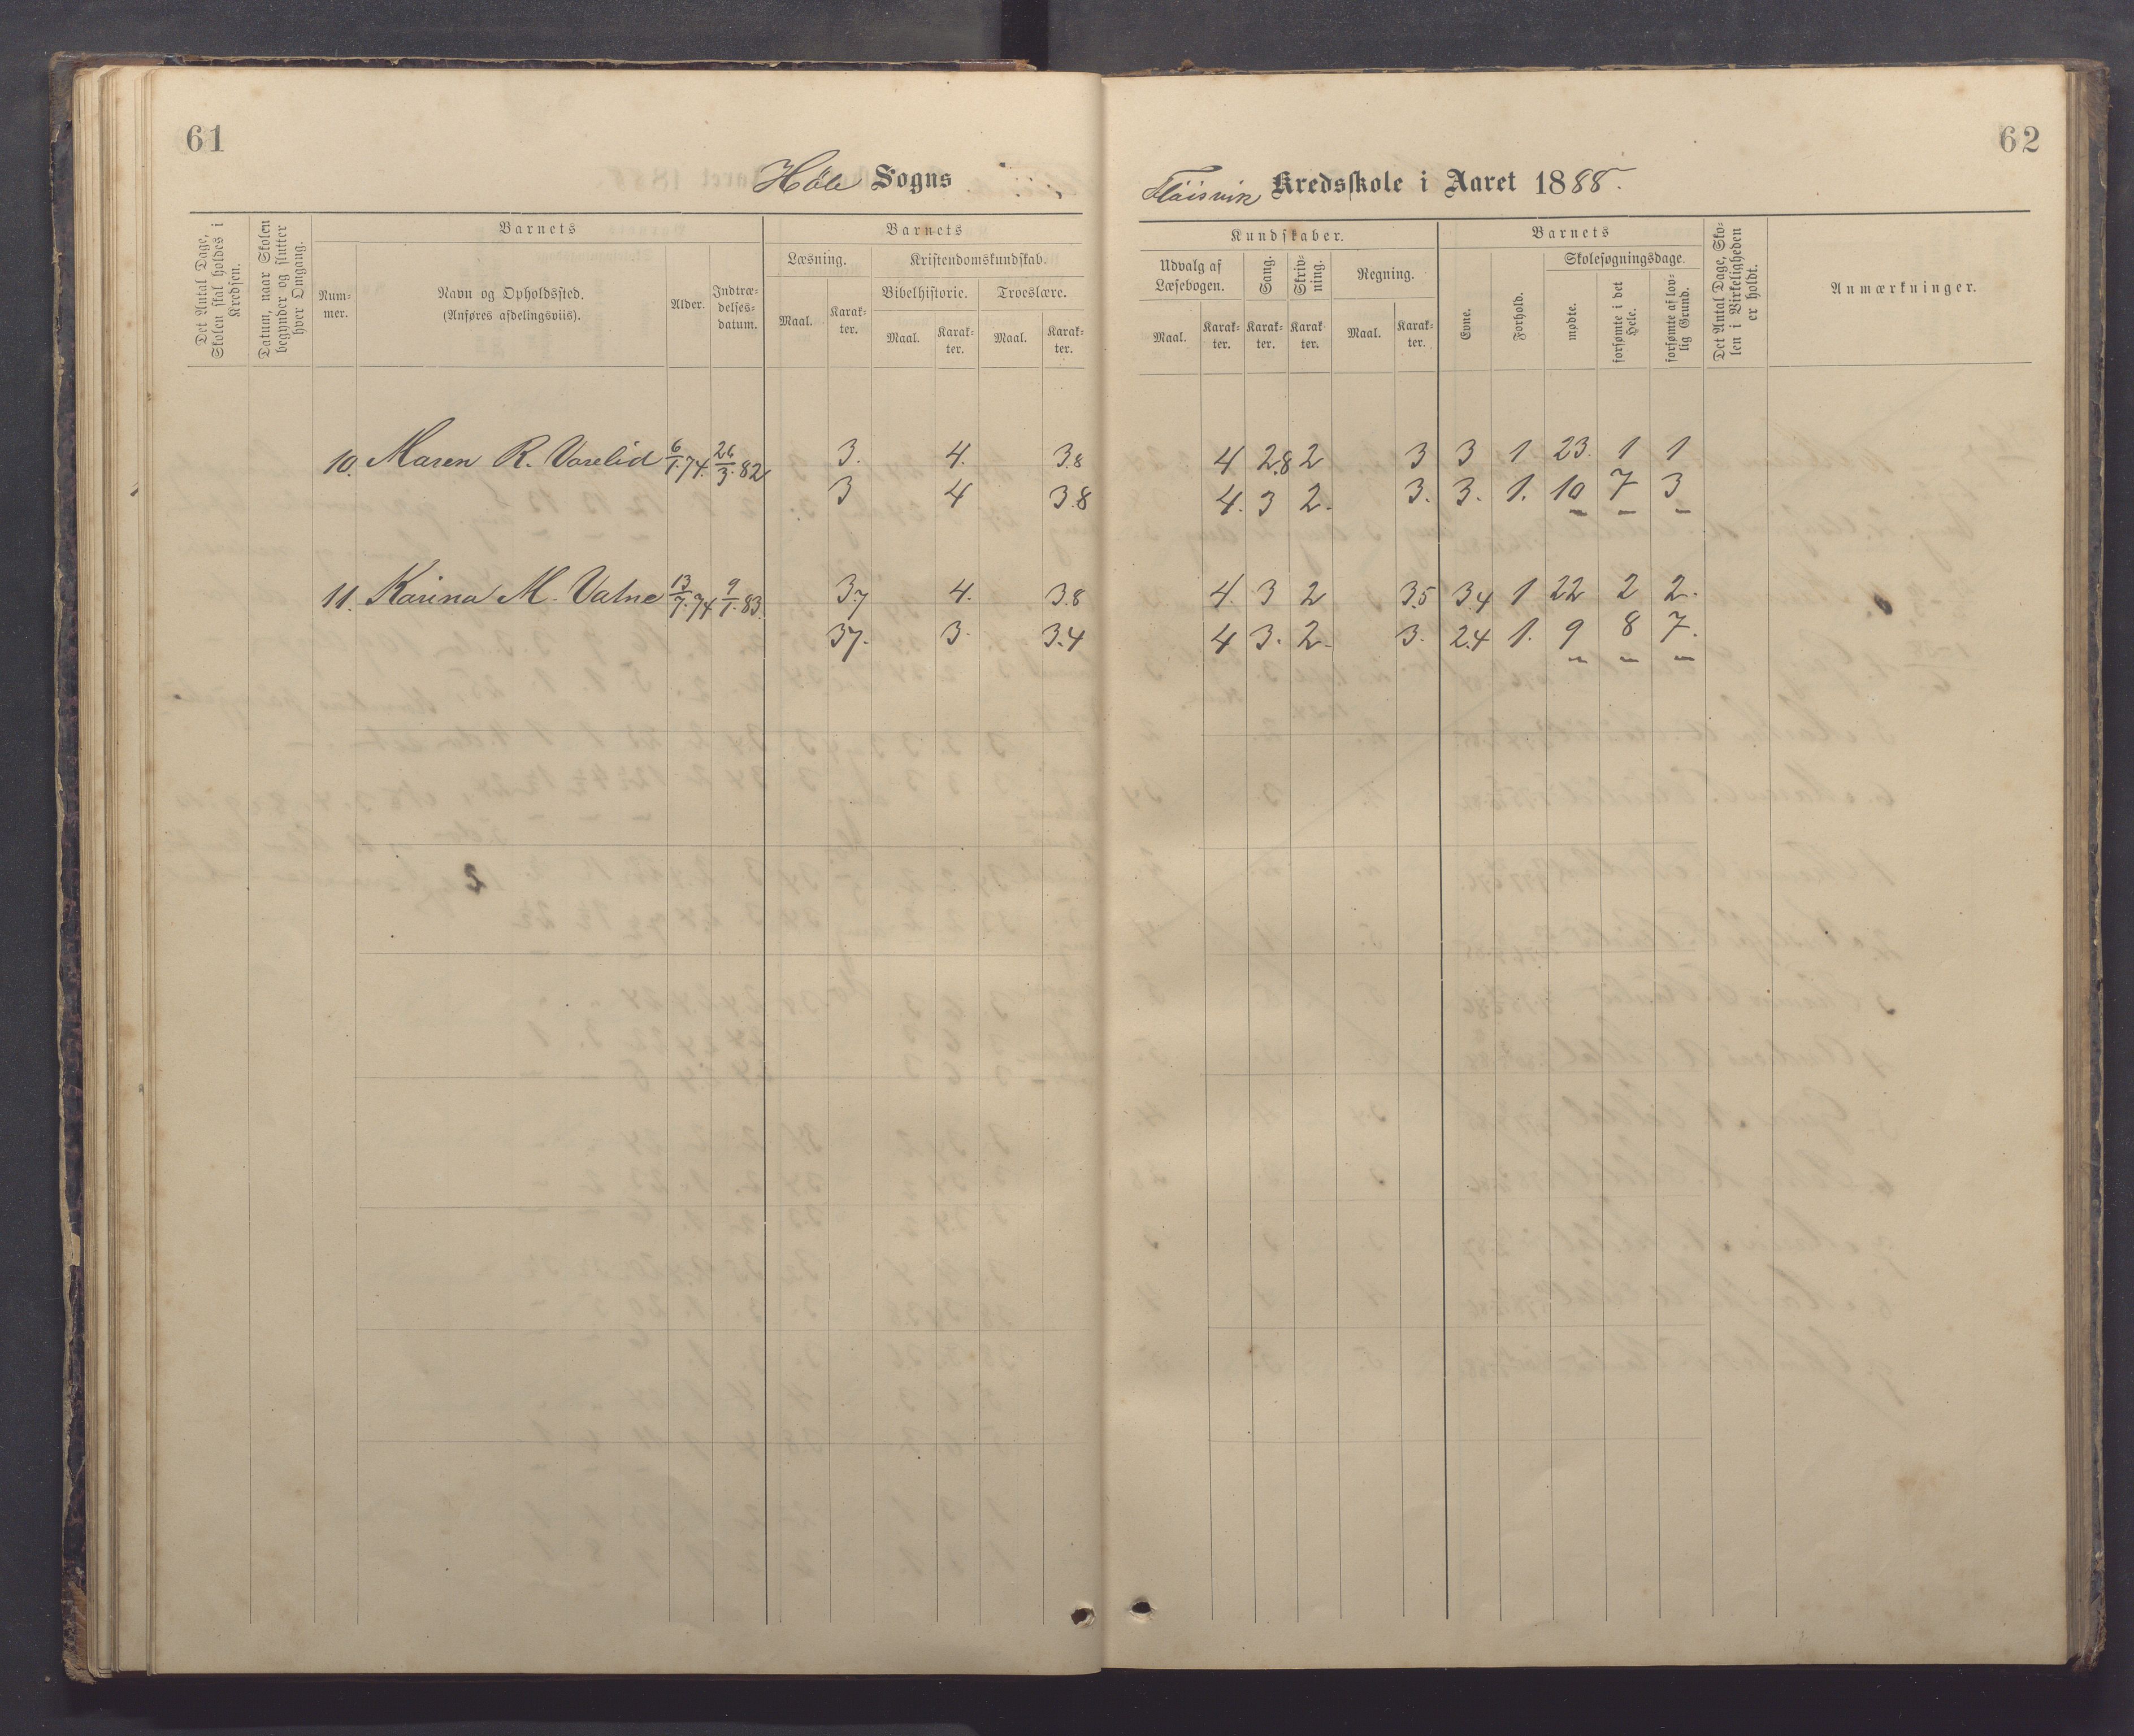 61
Høle Sogns
Det Antal Dage, Skolen skal holdes i Kredsen.
Datum, naar Skolen begynder og slutter hver Omgang.
Barnets
Num-
mer.
Navn og Opholdssted.
(Anføres afdelingsviis).
Alder.
Indtræ-
delses-
datum.
Barnets
Læsning.
Kristendomskundskab.
Bibelhistorie.
Troeslære.
Maal.
Karak-
ter.
Maal.
Karak-
ter.
Maal.
Karak-
ter.
10. Maren R. Varelid 6/1.74. 26/3.82 3. 4. 3.8
3 4 3.8
11. Karina M. Valne 13/7.74 9/1.83. 3.7 4. 3.8
3.7. 3. 3.4
62
Fløisvik Kredsskole i Aaret 1888.
Kundskaber.
Udvalg af
Læsebogen.
Sang.
Skriv-
ning.
Regning.
Maal.
Karak-
ter.
Karak-
ter.
Karak-
ter.
Maal.
Karak-
ter.
Barnets
Evne.
Forhold.
Skolesøgningsdage.
mødte.
forsømte i det
Hele.
forsømte af lov-
lig Grund.
Det Antal Dage, Sko-
len i Virkeligheden
er holdt.
Anmærkninger.
4 2.8 2 3 3 1 23. 1 1
4. 3 2. 3. 3. 1. 10 7 3
4. 3 2 3.5 3.4 1 22 2 2.
4 3. 2. 3. 2.4 1. 9 8 7.